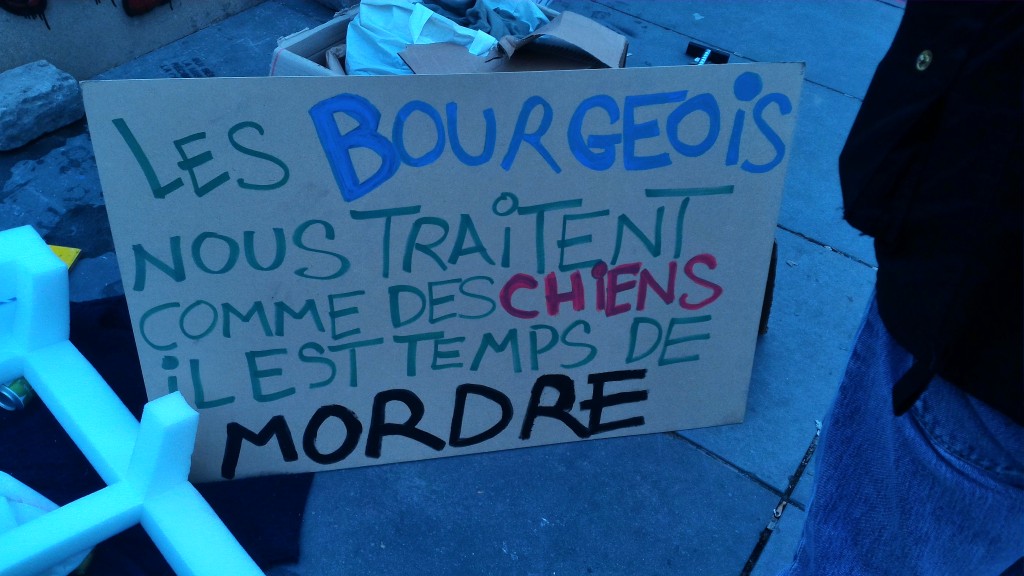 LES BOURGEOiS
NOUS TRAiTENT
COMME DES CHiENS
iL EST TEMPS DE
MORDRE